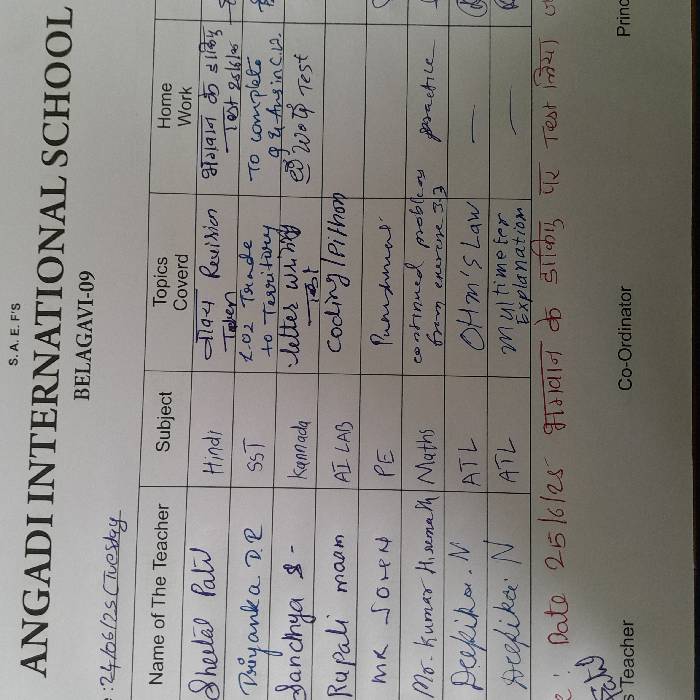 S. A. E. F'S
ANGADI INTERNATIONAL SCHOOL
BELAGAVI-09
: 24/06/25 (Tuesday
Name of The Teacher Subject Topics Coverd Home Work
Sheetal Patil Hindi Revision Taken भगवान के डाकिए Test 25/6/25
Priyanka D.R SST L-02 Trade to Territory To complete Q & Ans in C.W.
Sandhya S - Kannada letter writing Test Word Test
Rupali maam AI LAB Coding/Pithon
MR Soren PE Punishment
Mr. Kumar Hiremath Maths continued problems from exercise 3.3 practice
Deepika. N ATL OHM'S LAW —
Deepika. N ATL Multimeter Explanation —
: Date 25/6/25 भगवान के डाकिए पर Test लिया
Teacher Co-Ordinator Princ